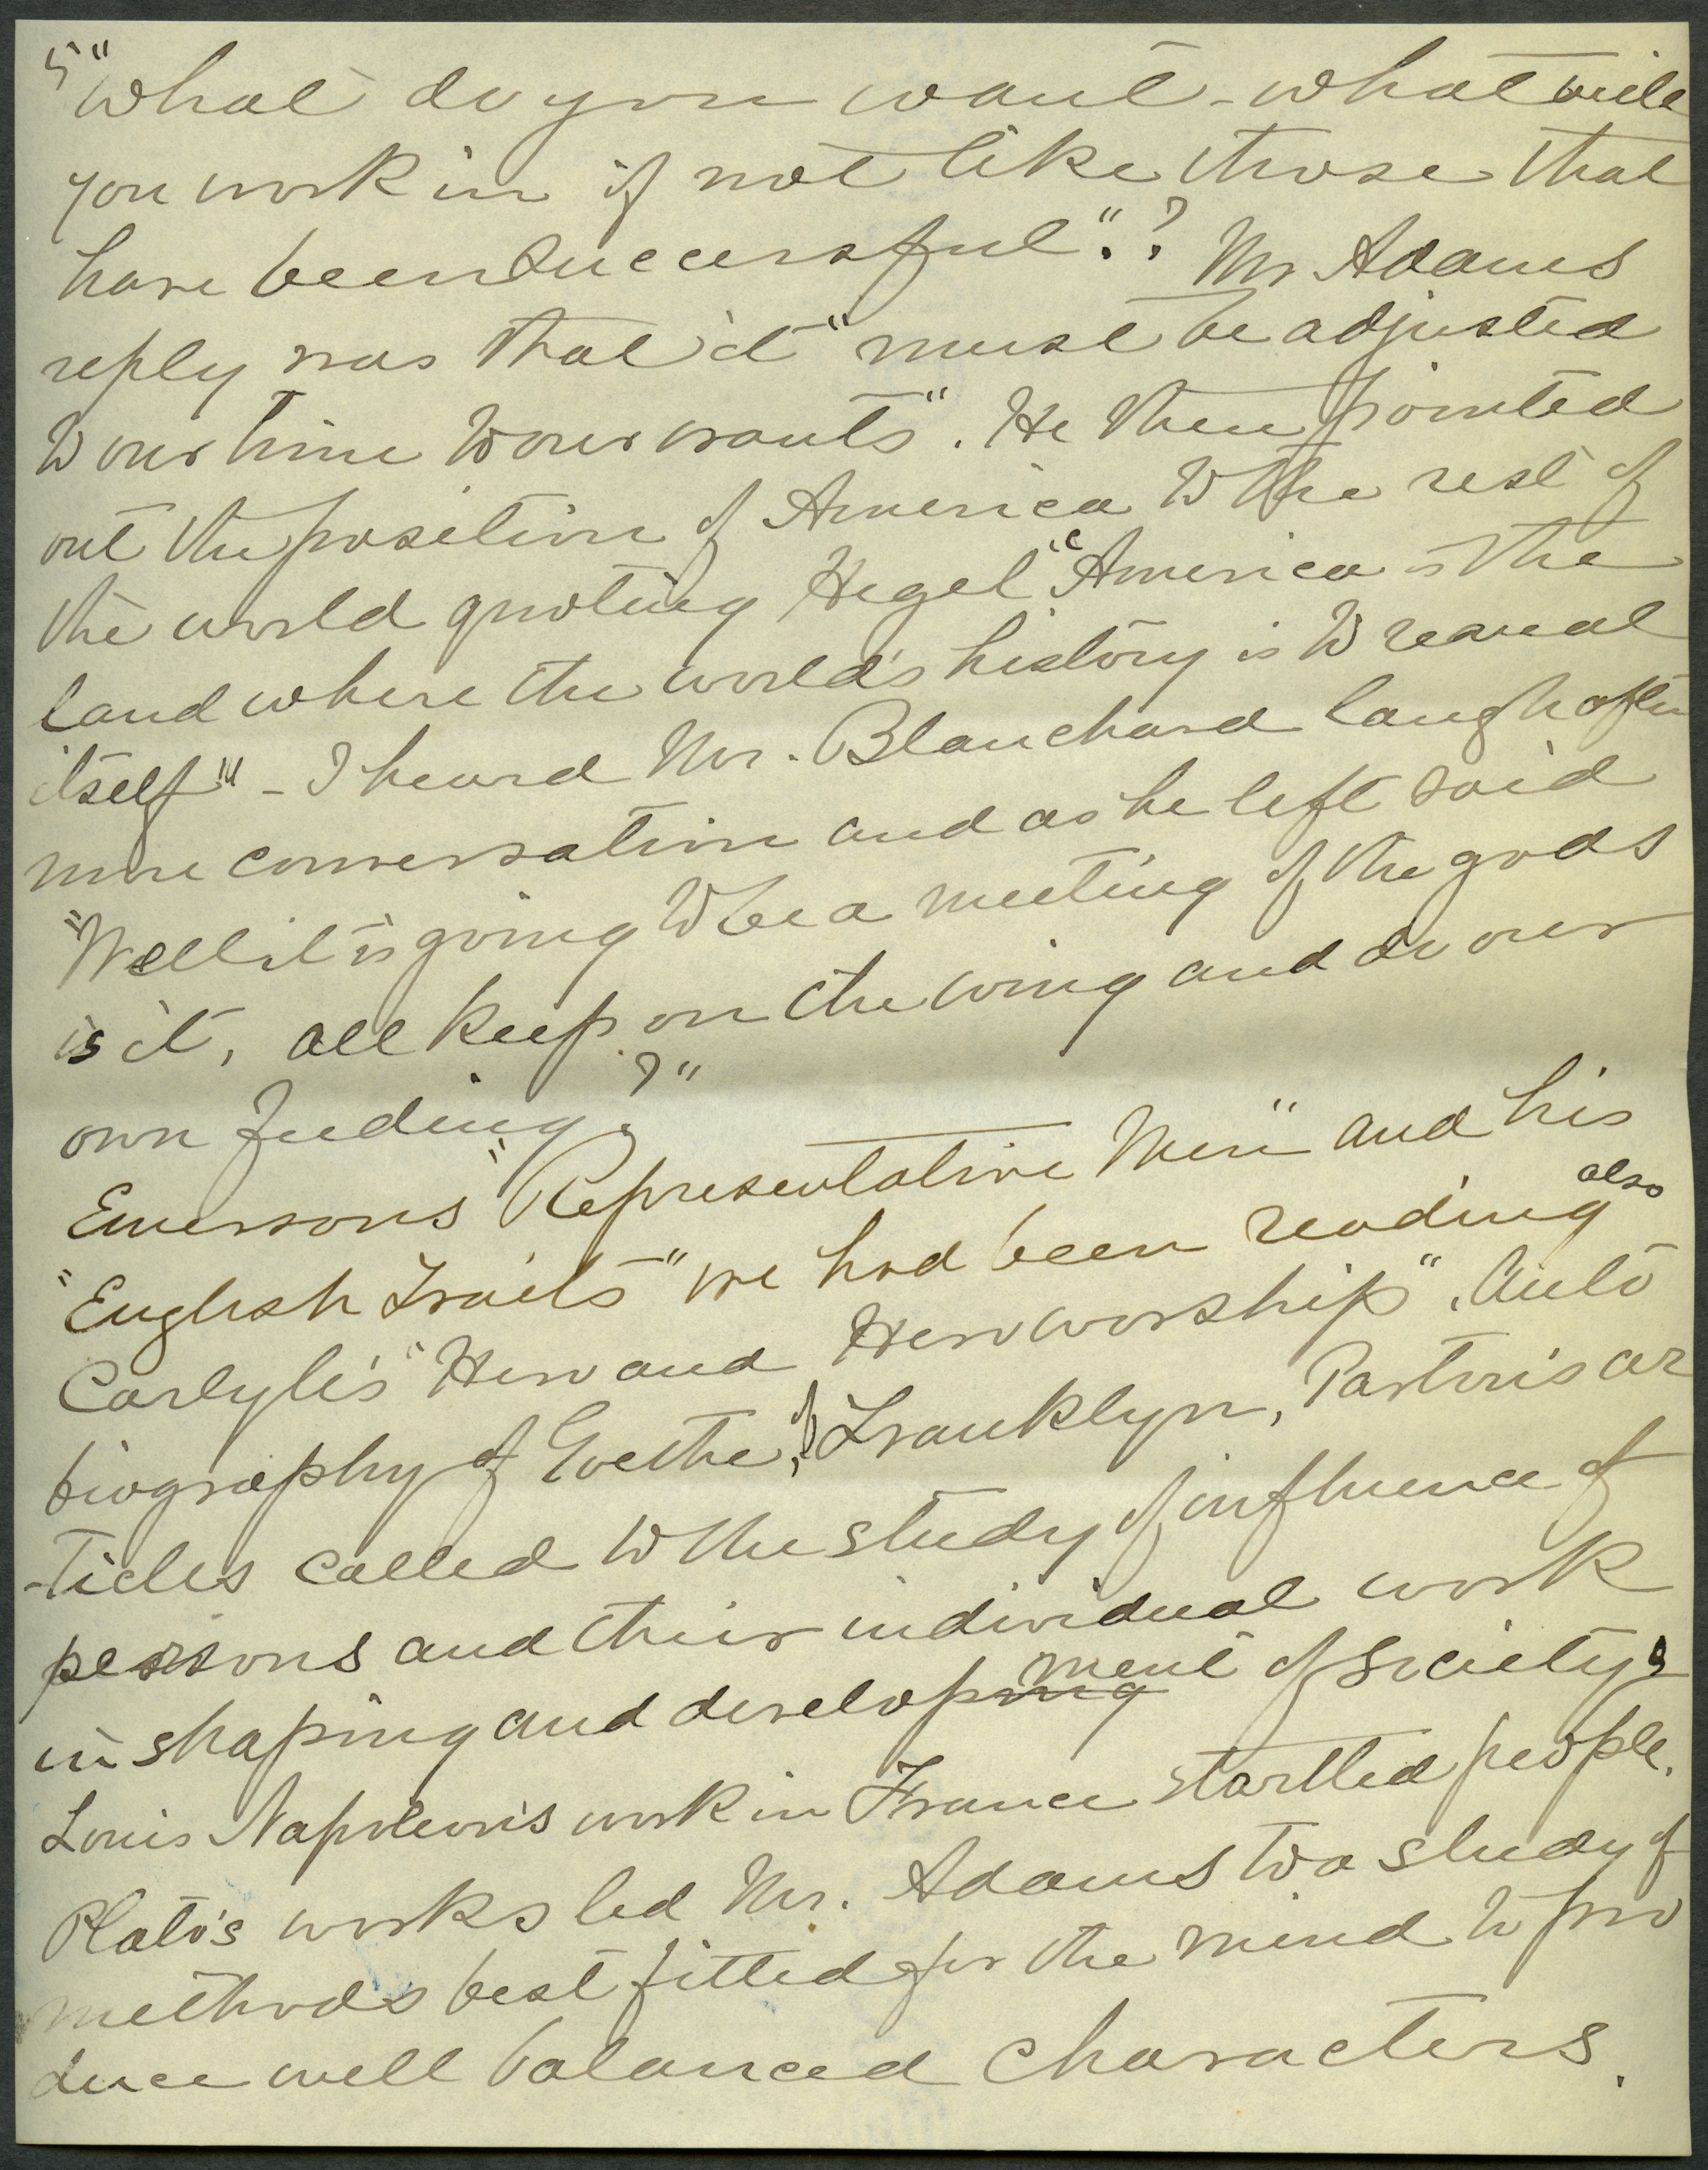 5 "What do you want - what will
you work in if not like those that
have been successful"? Mr Adams
reply was that it "must be adjusted
to our time to our wants". He then pointed
out the position of America to the rest of
the world quoting Hegel "'America is the
land where the world's history is to reveal
itself'" - I heard Mr. Blanchard laugh after
more conversation and as he left said
"Well it is going to be a meeting of the gods
is it, all keep on the wing and do our
own feeding?"
Emersons "Representative Men" and his
"English Traits" we had been reading also
Carlyle's "Hero and Heroworship". Auto
biography of Goethe, of Franklyn, Parton's ar
-ticles called to the study of influence of
persons and their individual work
in shaping and developing ment of society.
Louis Napoleon's work in France startled people.
Plato's works led Mr. Adams to a study of
methods best fitted for the mind to pro
duce well balanced characters.